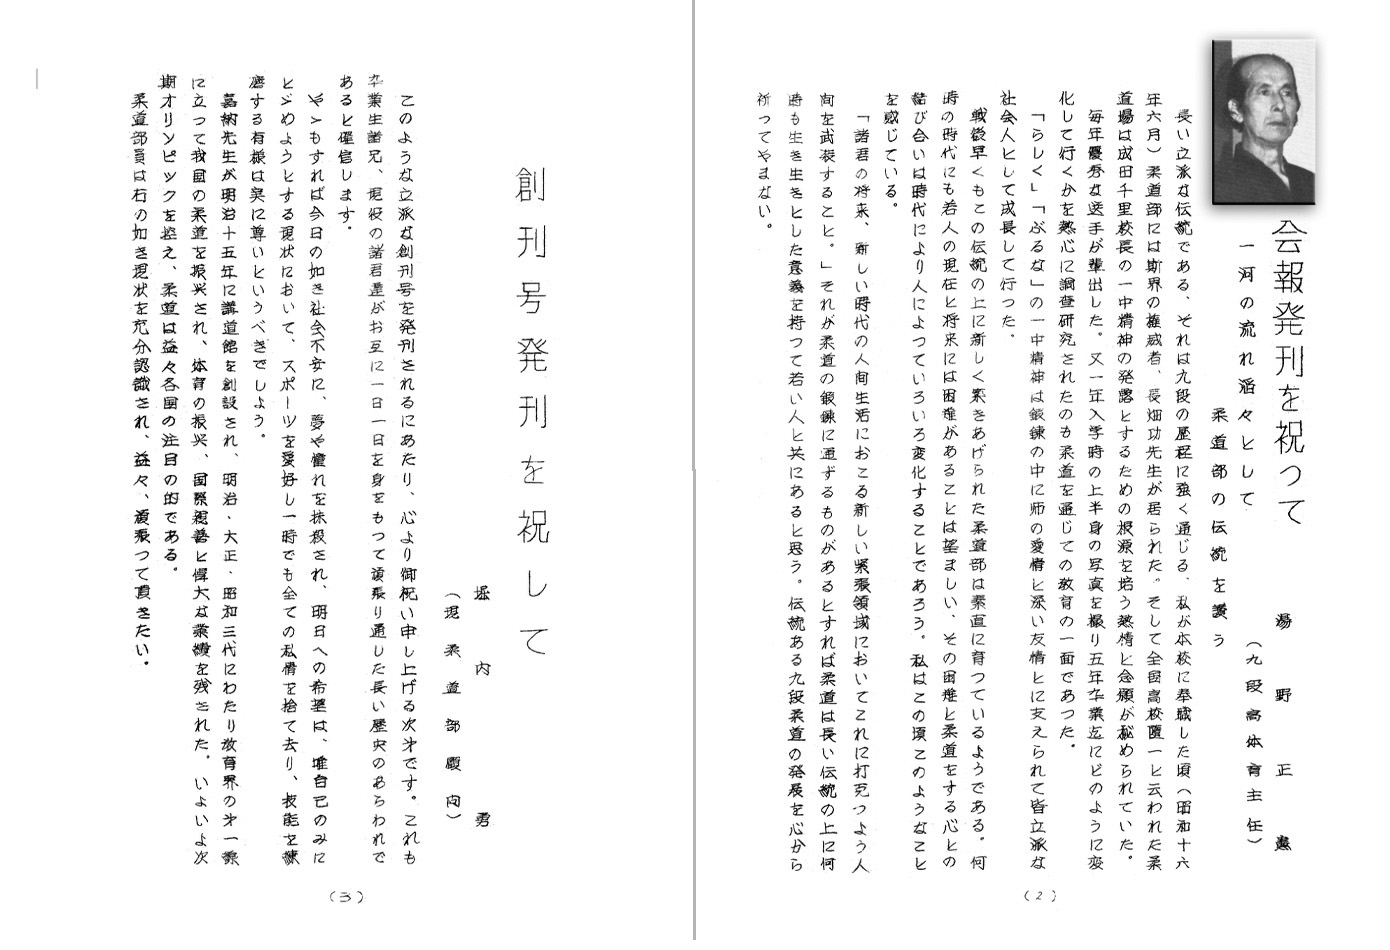 会報発刊を祝つて
一河の流れ滔々として
柔道部の伝統を讃う
湯野正憲
（九段高体育主任）
長い立派な伝統である、それは九段の歴程に強く通じる、私が本校に奉職した頃（昭和十六
年六月）柔道部には斯界の権威者、長畑功先生が居られた。そして全国高校随一と云われた柔
道場は成田千里校長の一中精神の発露とするための根源を培う熱情と念願が秘められていた。
毎年優秀な選手が輩出した。又一年入学時の上半身の写真を撮り五年卒業迄にどのように変
化して行くかを熱心に調査研究されたのも柔道を通じての教育の一面であつた。
「らしく」「ぶるな」の一中精神は鍛錬の中に師の愛情と深い友情とに支えられて皆立派な
社会人として成長して行つた。
戦後早くもこの伝統の上に新しく築きあげられた柔道部は素直に育つているようである。何
時の時代にも若人の現在と将来には困難があることは望ましい、その困難と柔道をする心との
結び合いは時代により人によつていろいろ変化することであろう。私はこの頃このようなこと
を感じている。
「諸君の将来、新しい時代の人間生活におこる新しい緊張領域においてこれに打克つよう人
間を武装すること。」それが柔道の鍛錬に通ずるものがあるとすれば柔道は長い伝統の上に何
時も生き生きとした意義を持つて若い人と共にあると思う。伝統ある九段柔道の発展を心から
祈つてやまない。
（2）
創刊号発刊を祝して
堀内勇
（現柔道部顧問）
このような立派な創刊号を発刊されるにあたり、心より御祝い申し上げる次才です。これも
卒業生諸兄、現役の諸君達がお互に一日一日を身をもつて頑張り通した長い歴史のあらわれで
あると確信します。
やゝもすれば今日の如き社会不安に、夢や憧れを抹殺され、明日への希望は、唯自己のみに
とゞめようとする現状において、スポーツを愛好し一時でも全ての私情を捨て去り、技能を錬
磨する有様は実に尊いというべきでしよう。
嘉納先生が明治十五年に講道館を創設され、明治・大正・昭和三代にわたり教育界の才一線
に立つて我国の柔道を振興され、体育の振興、国際親善と偉大な業績を残された。いよいよ次
期オリンピックを控え、柔道は益々各国の注目の的である。
柔道部員は右の如き現状を充分認識され、益々、頑張つて頂きたい。
（3）